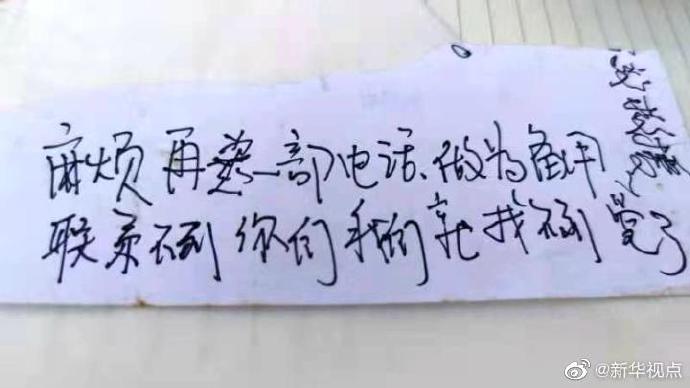 麻烦再要一部电话、做为备用
联系不到你们我们就找不到党了
@新华视点